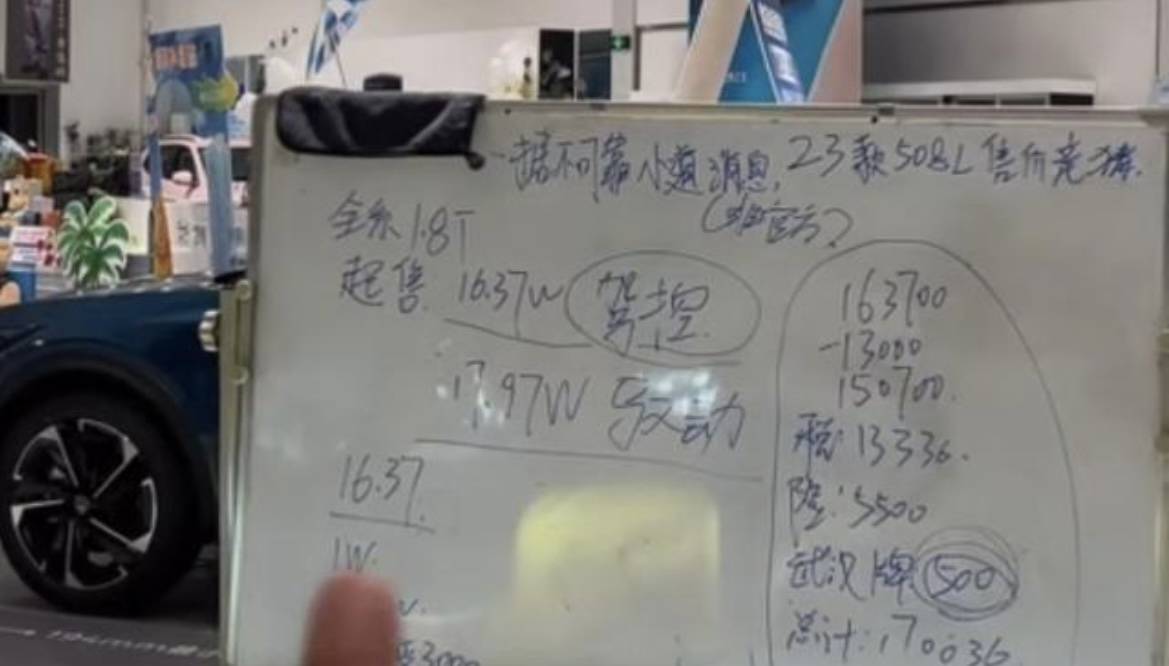 据不可靠小道消息,23款508L售价竞猜.
(非官方)
全系1.8T
起售 16.37W 驾控
17.97W 驭动
16.37
1W.
3000
163700
-13000
150700.
税:13336.
险:5500
武汉牌 500
总计:170036